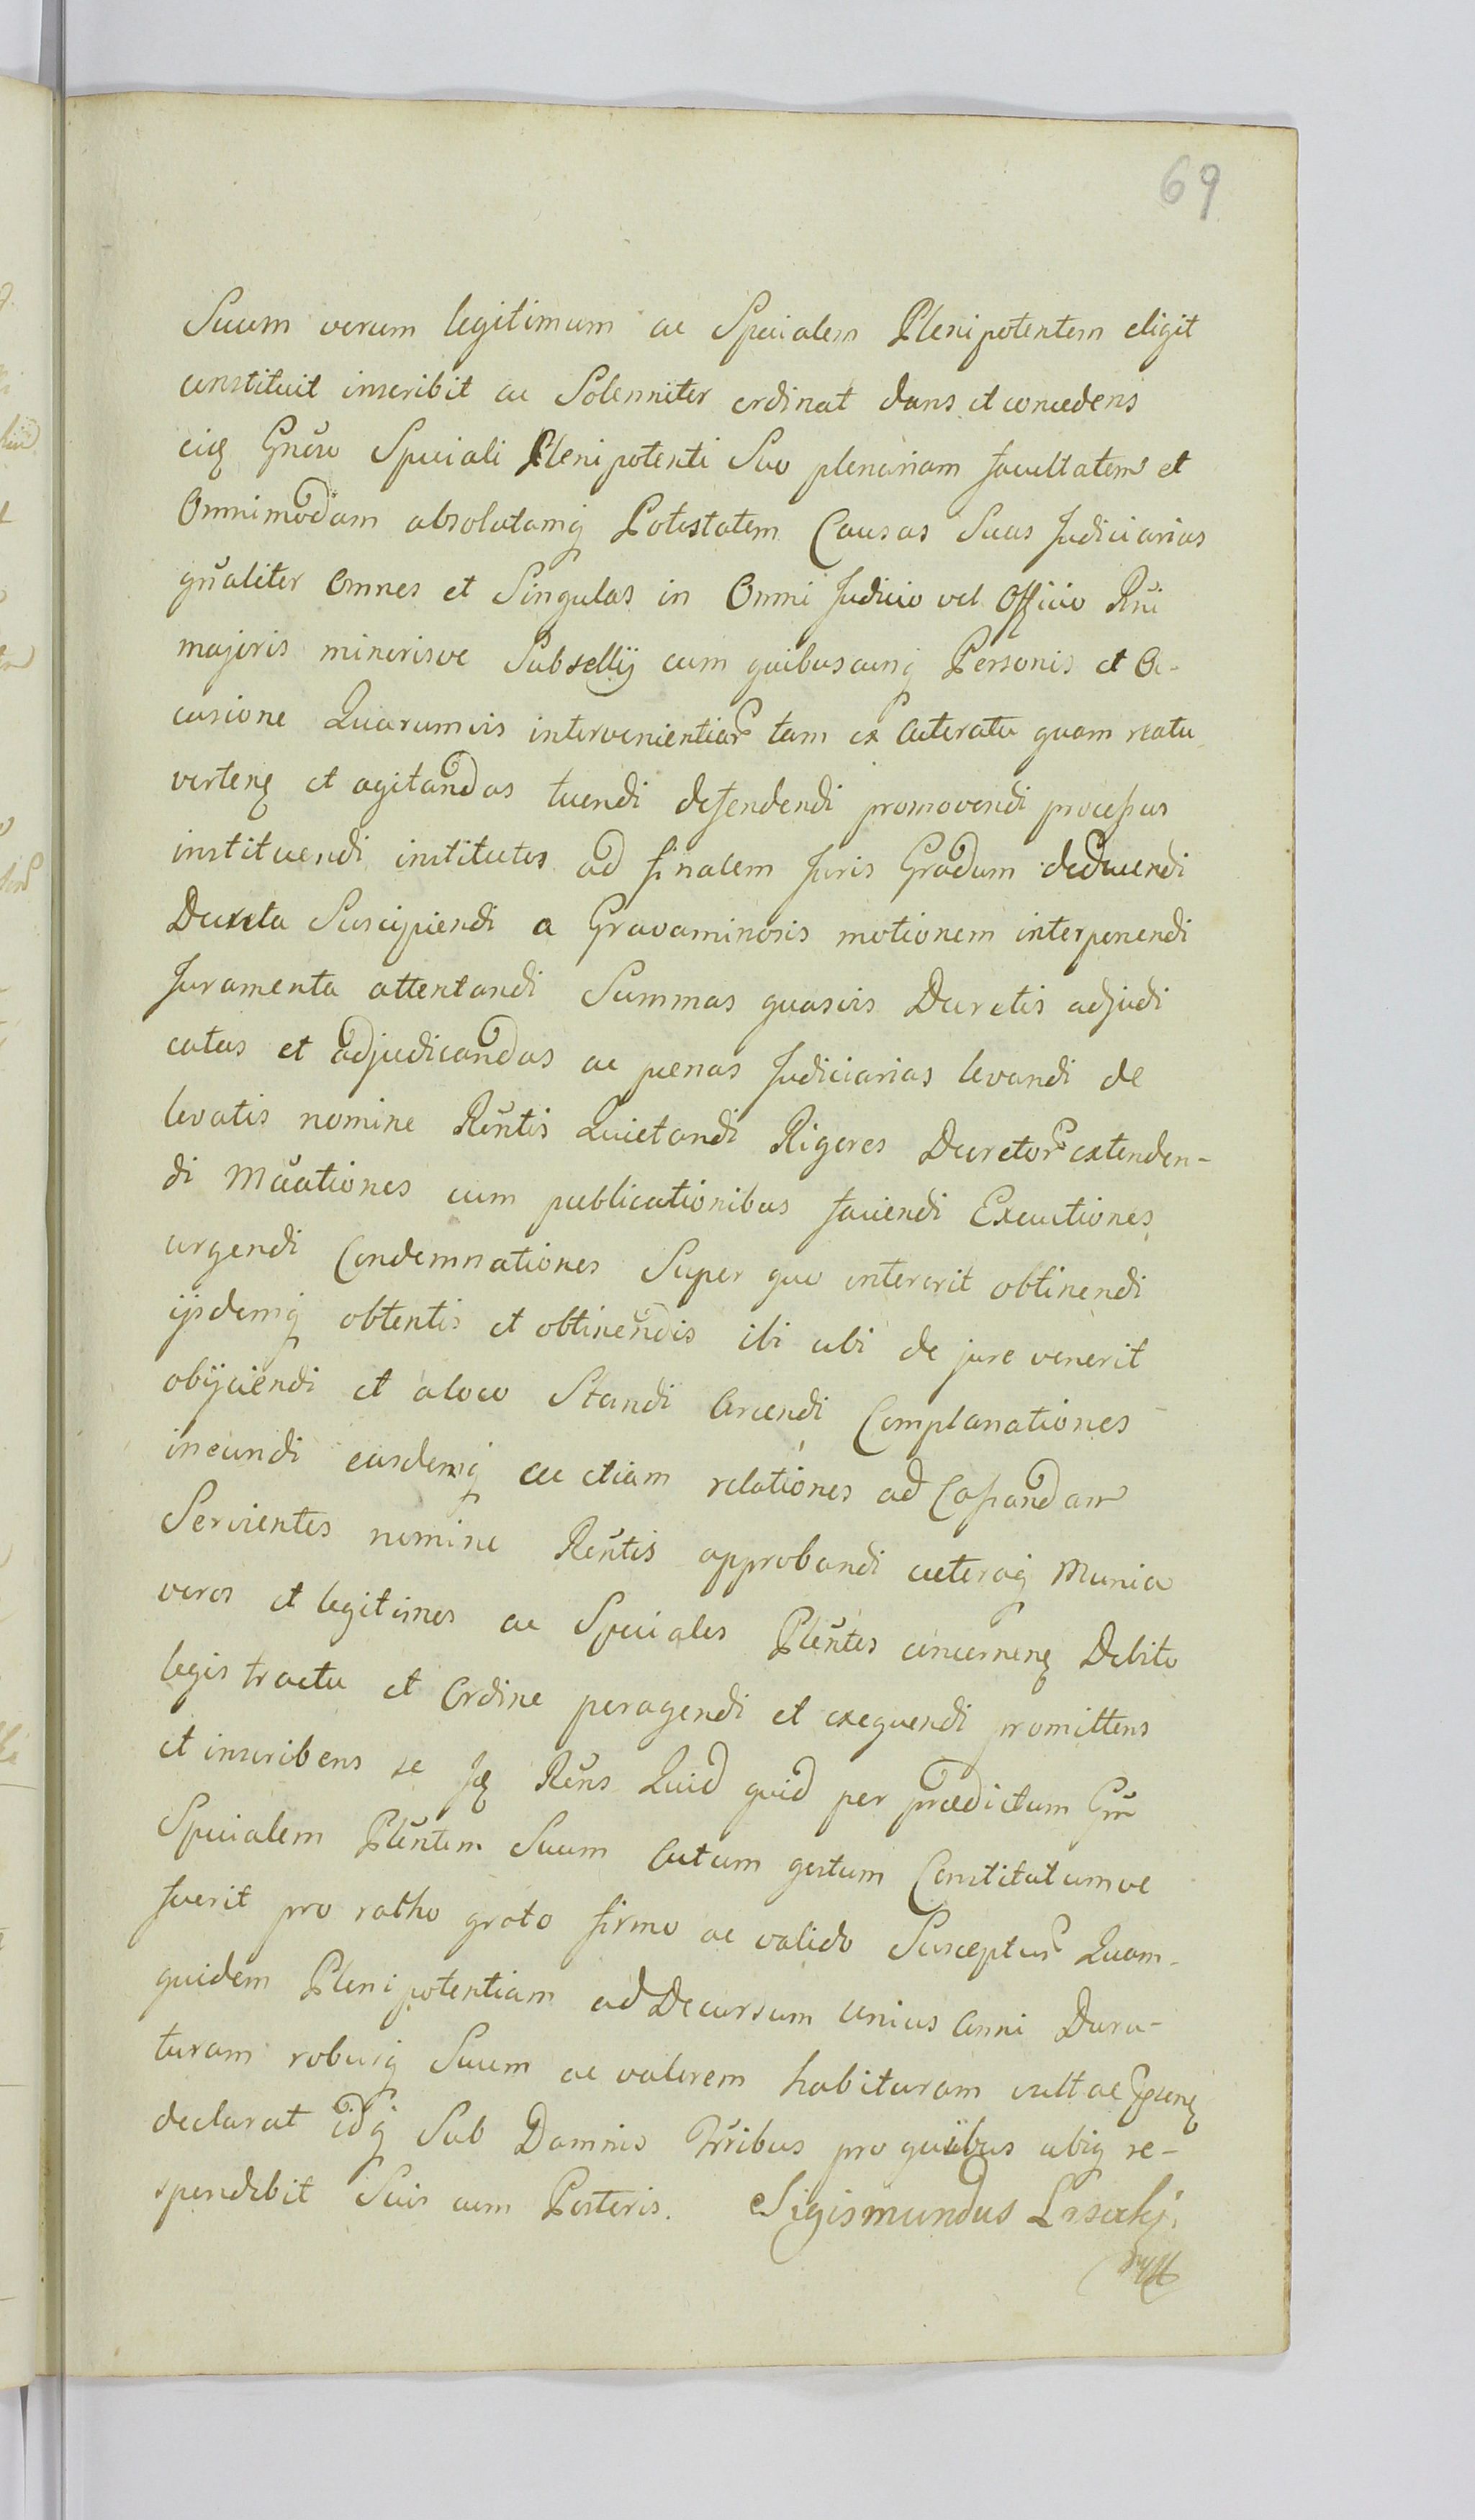 69
Suum verum legitimum ac Specialem Plenipotentem eligit
constituit inscribit ac Solenniter ordinat dans et concedens
eidẽ Gnõso Speciali Plenipotenti Suo plenariam facultatem et
Omnimodam absolutamq̃ Potestatem Causas Suas Judiciarias
gnãliter Omnes et Singulas in Omni Judicio vel Officio Rni
majoris minorisve Subsellij cum quibuscunq̃ Personis et Oc-
casione Quarumvis intervenientiar tam ex Acteratu quam reatu
verteñ et agitandas tuendi defendendi promovendi processus
instituendi institutos ad finalem Juris Gradum deducendi
Decreta Suscipiendi a Gravaminosis motionem interponendi
Juramenta attentandi Summas quasvis Decretis adjudi
catas et adjudicandas ac pœnas Judiciarias levandi de
levatis nomine Rẽntis Quietandi Rigores Decretor extenden-
di Mũationes cum publicationibus faciendi Executiones
urgendi Condemnationes Super quo intererit obtinendi
ijsdemq̃ obtentis et obtinendis ibi ubi de jure venerit
obijciendi et a loco Standi Arcendi Complanationes
ineundi easdemq̃ ac etiam relationes ad Cassandam
Servientes nomine Rẽntis approbandi cæteraq̃ Munia
veros et legitimos ac Speciales Plẽntes concerneñ Debito
legis tractu et Ordine peragendi et exequendi promittens
et inscribens se Idẽ Rẽns Quid quid per prædictum Gñ
Specialem Plẽntem Suum Actum gestum Constitutumve
fuerit pro ratho grato firmo ac valido Suscepturˀ Quam-
quidem Plenipotentiam ad Decursum unius Anni Dura-
turam roburq̃ Suum ac valorem habituram vult ac
declarat idq̃ Sub Damnis Trribus pro quibus ubiq̃ re-
spondebit Suis cum Posteris. Sigismundus